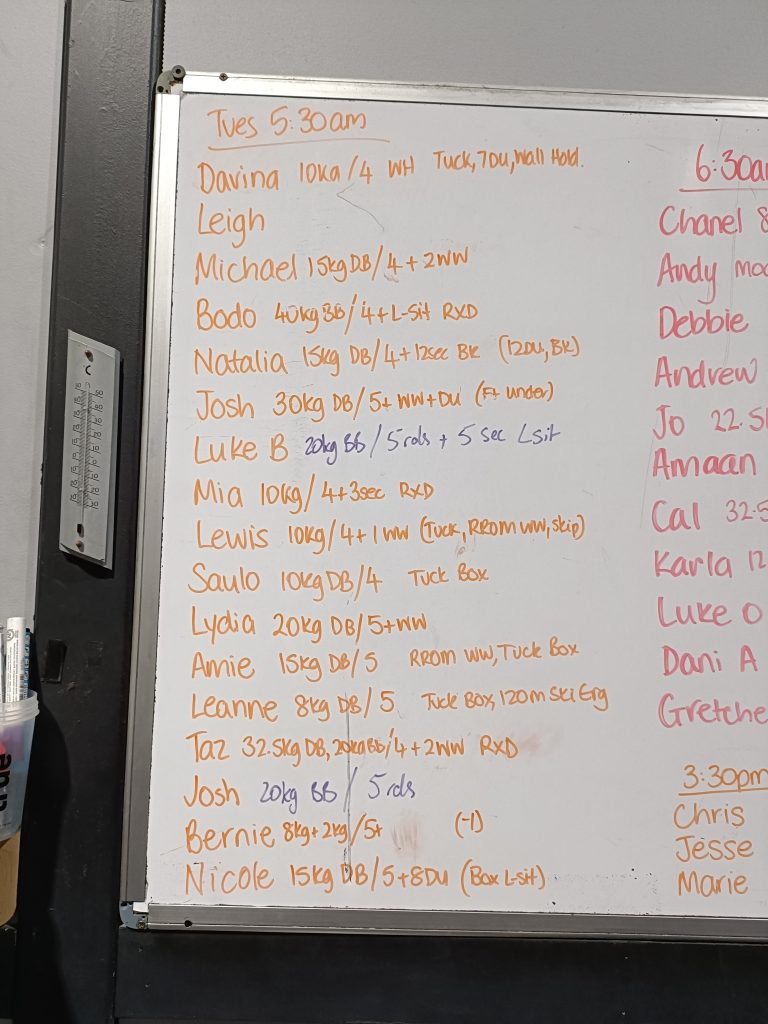 Tues 5:30am
Davina 10kg/4 WH Tuck, 7DU, Wall Hold.
Leigh
Michael 15kg DB/4+2WW
Bodo 40kg BB/4+L-Sit RXD
Natalia 15kg DB/4+12sec BK (12DU, BK)
Josh 30kg DB/5+WW+DU (Ft under)
Luke B 20kg BB/5rds + 5 sec Lsit
Mia 10kg/4+3sec RXD
Lewis 10kg/4+1WW (Tuck, RROM WW, skip)
Saulo 10kg DB/4 Tuck Box
Lydia 20kg DB/5+WW
Amie 15kg DB/5 RROM WW, Tuck Box
Leanne 8kg DB/5 Tuck Box, 120m Ski Erg
Taz 32.5kg DB, 20kg BB/4+2WW RXD
Josh 20kg BB/5rds
Bernie 8kg+2kg/5+ (-1)
Nicole 15kg DB/5+8DU (Box L-sit)
6:30a
Chanel 8
Andy mo
Debbie
Andrew
Jo 22.5
Amaan
Cal 32.5
Karla 12
Luke O
Dani A
Gretche
3:30pm
Chris
Jesse
Marie
C
true